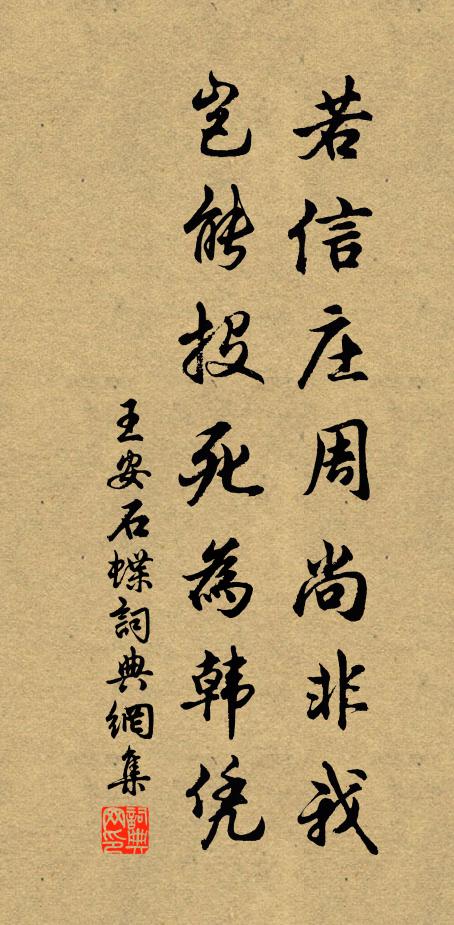 若信庄周尚非我
岂能投死為韩凭
王安石蝶詞典網集
詞典网印